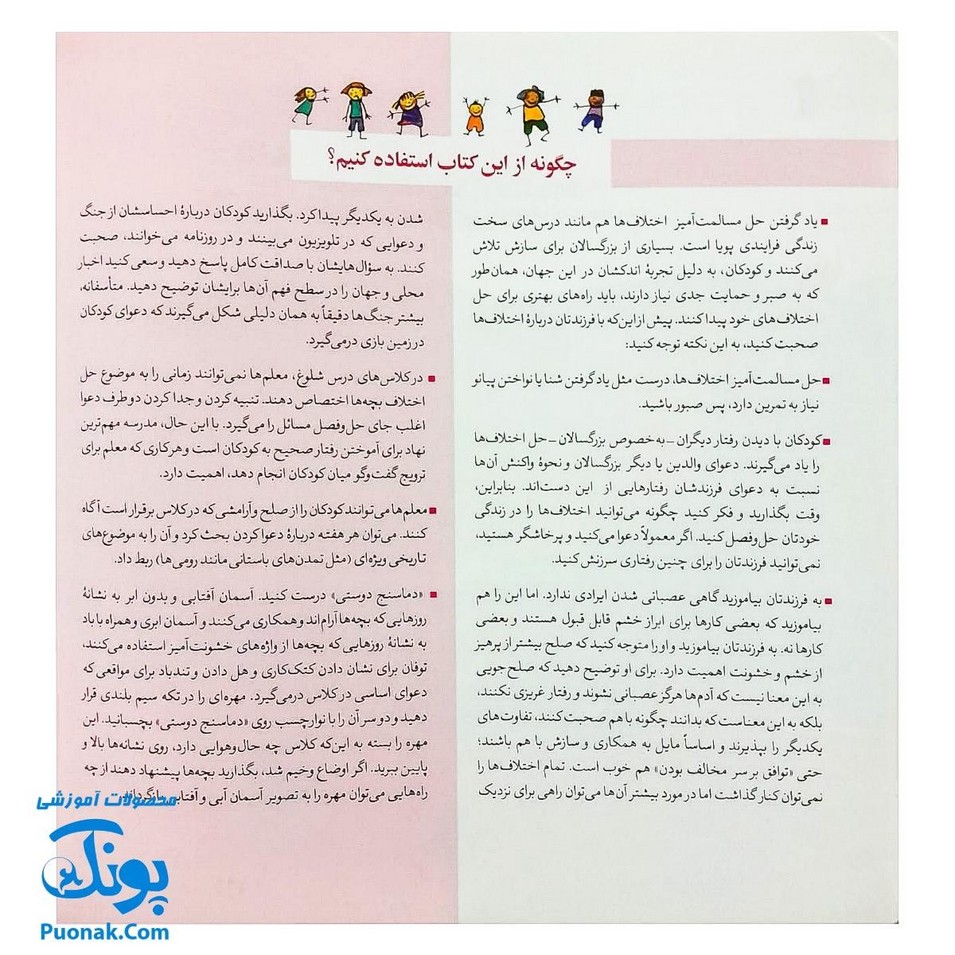 چگونه از این کتاب استفاده کنیم؟
یاد گرفتن حل مسالمت‌آمیز اختلاف‌ها هم مانند درس‌های سخت
زندگی فرایندی پویا است. بسیاری از بزرگسالان برای سازش تلاش
می‌کنند و کودکان، به دلیل تجربهٔ اندکشان در این جهان، همان‌طور
که به صبر و حمایت جدی نیاز دارند، باید راه‌های بهتری برای حل
اختلاف‌های خود پیدا کنند. پیش از این‌که با فرزندتان دربارهٔ اختلاف‌ها
صحبت کنید، به این نکته توجه کنید:
حل مسالمت‌آمیز اختلاف‌ها، درست مثل یاد گرفتن شنا یا نواختن پیانو
نیاز به تمرین دارد، پس صبور باشید.
کودکان با دیدن رفتار دیگران – به‌خصوص بزرگسالان – حل اختلاف‌ها
را یاد می‌گیرند. دعوای والدین یا دیگر بزرگسالان و نحوهٔ واکنش آن‌ها
نسبت به دعوای فرزندشان رفتارهایی از این دست‌اند. بنابراین،
وقت بگذارید و فکر کنید چگونه می‌توانید اختلاف‌ها را در زندگی
خودتان حل‌وفصل کنید. اگر معمولاً دعوا می‌کنید و پرخاشگر هستید،
نمی‌توانید فرزندتان را برای چنین رفتاری سرزنش کنید.
به فرزندتان بیاموزید گاهی عصبانی شدن ایرادی ندارد. اما این را هم
بیاموزید که بعضی کارها برای ابراز خشم قابل قبول هستند و بعضی
کارها نه. به فرزندتان بیاموزید و او را متوجه کنید که صلح بیشتر از پرهیز
از خشم و خشونت اهمیت دارد. برای او توضیح دهید که صلح‌جویی
به این معنا نیست که آدم‌ها هرگز عصبانی نشوند و رفتار غریزی نکنند،
بلکه به این معناست که بدانند چگونه با هم صحبت کنند، تفاوت‌های
یکدیگر را بپذیرند و اساساً مایل به همکاری و سازش با هم باشند؛
حتی «توافق بر سر مخالف بودن» هم خوب است. تمام اختلاف‌ها را
نمی‌توان کنار گذاشت اما در مورد بیشتر آن‌ها می‌توان راهی برای نزدیک
شدن به یکدیگر پیدا کرد. بگذارید کودکان دربارهٔ احساسشان از جنگ
و دعوایی که در تلویزیون می‌بینند و در روزنامه می‌خوانند، صحبت
کنند. به سؤال‌هایشان با صداقت کامل پاسخ دهید و سعی کنید اخبار
محلی و جهان را در سطح فهم آن‌ها برایشان توضیح دهید. متأسفانه،
بیشتر جنگ‌ها دقیقاً به همان دلیلی شکل می‌گیرند که دعوای کودکان
در زمین بازی درمی‌گیرد.
در کلاس‌های درس شلوغ، معلم‌ها نمی‌توانند زمانی را به موضوع حل
اختلاف بچه‌ها اختصاص دهند. تنبیه کردن و جدا کردن دو طرف دعوا
اغلب جای حل‌وفصل مسائل را می‌گیرد. با این حال، مدرسه مهم‌ترین
نهاد برای آموختن رفتار صحیح به کودکان است و هر کاری که معلم برای
ترویج گفت‌وگو میان کودکان انجام دهد، اهمیت دارد.
معلم‌ها می‌توانند کودکان را از صلح و آرامشی که در کلاس برقرار است آگاه
کنند. می‌توان هر هفته دربارهٔ دعوا کردن بحث کرد و آن را به موضوع‌های
تاریخی ویژه‌ای (مثل تمدن‌های باستانی مانند رومی‌ها) ربط داد.
«دماسنج دوستی» درست کنید. آسمان آفتابی و بدون ابر به نشانهٔ
روزهایی که بچه‌ها آرام‌اند و همکاری می‌کنند و آسمان ابری و همراه با باد
به نشانهٔ روزهایی که بچه‌ها از واژه‌های خشونت‌آمیز استفاده می‌کنند،
توفان برای نشان دادن کتک‌کاری و هل دادن و تندباد برای مواقعی که
دعوای اساسی در کلاس درمی‌گیرد. مهره‌ای را در تکه سیم بلندی قرار
دهید و دو سر آن را با نوارچسب روی «دماسنج دوستی» بچسبانید. این
مهره را بسته به این‌که کلاس چه حال‌وهوایی دارد، روی نشانه‌ها بالا و
پایین ببرید. اگر اوضاع وخیم شد، بگذارید بچه‌ها پیشنهاد دهند از چه
راه‌هایی می‌توان مهره را به تصویر آسمان آبی و آفتابی
محصولات آموزشی
پونک
Puonak.Com